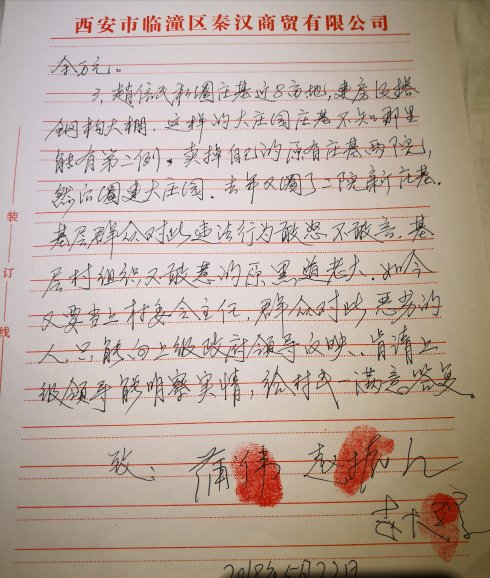 西安市临潼区秦汉商贸有限公司
余万元。
3、赵信民私圈庄基近8亩地，建房及搭
钢构大棚，这样的大庄园庄基不知那里
能有第二例。卖掉自己的原有庄基两院，
然后圈建大庄园。去年又圈了二院新庄基。
基层群众对此违法行为敢怒不敢言，基
层村组织不敢惹的原黑道老大，如今
又要当上村委会主任，群众对此恶劣的
人，只能向上级政府领导反映，肯请上
级领导能明察实情，给村民一满意答复。
装订线
致：蒲伟 赵
赵
2018年5月22日